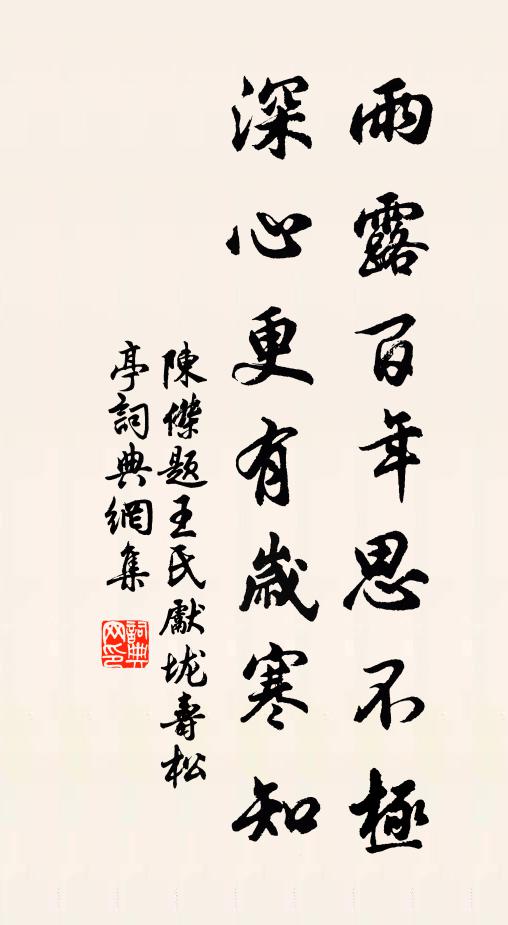 雨露百年思不極
深心更有歲寒知
陳傑題王氏獻壠壽松
亭詞典網集
詞典網印